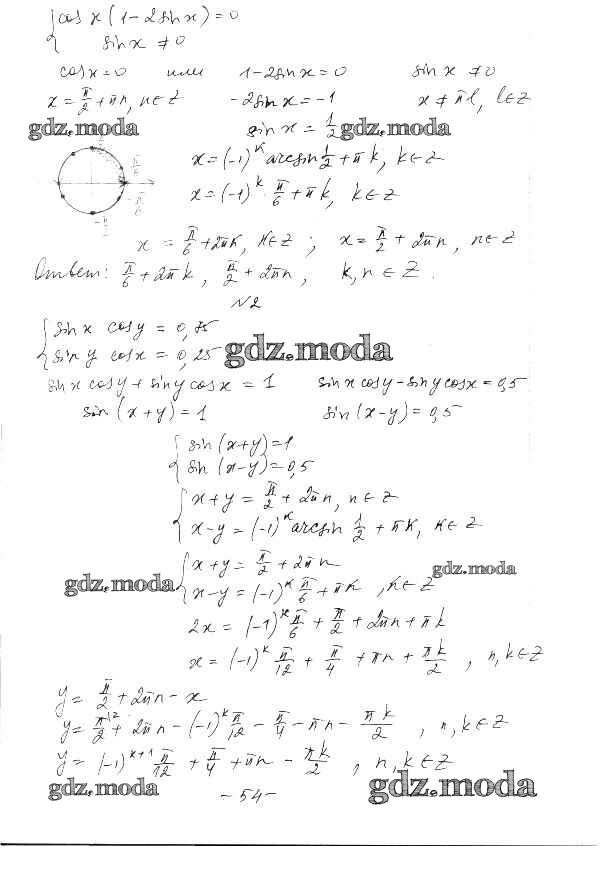 { cos x (1-2sin x) = 0
sin x ≠ 0
cos x = 0 или 1-2sin x = 0 sin x ≠ 0
x = π/2 + πn, n∈Z -2sin x = -1 x ≠ πl, l∈Z
gdz.moda sin x = 1/2 gdz.moda
x = (-1)^k arcsin 1/2 + πk, k∈Z
π/6
x = (-1)^k π/6 + πk, k∈Z
-π/6
x = π/6 + 2πk, k∈Z ; x = π/2 + 2πn, n∈Z
Ответ: π/6 + 2πk, π/2 + 2πn, k,n ∈ Z.
N2
{ sin x cos y = 0,75
sin y cos x = 0,25 gdz.moda
sin x cos y + sin y cos x = 1 sin x cos y - sin y cos x = 0,5
sin (x+y) = 1 sin (x-y) = 0,5
{ sin (x+y) = 1
sin (x-y) = 0,5
{ x+y = π/2 + 2πn, n∈Z
x-y = (-1)^k arcsin 1/2 + πk, k∈Z
{ x+y = π/2 + 2πn gdz.moda
gdz.moda x-y = (-1)^k π/6 + πk, k∈Z
2x = (-1)^k π/6 + π/2 + 2πn + πk
x = (-1)^k π/12 + π/4 + πn + πk/2, n,k∈Z
y = π/2 + 2πn - x
y = π/2 + 2πn - (-1)^k π/12 - π/4 - πn - πk/2, n,k∈Z
y = (-1)^(k+1) π/12 + π/4 + πn - πk/2, n,k∈Z
gdz.moda - 54 - gdz.moda